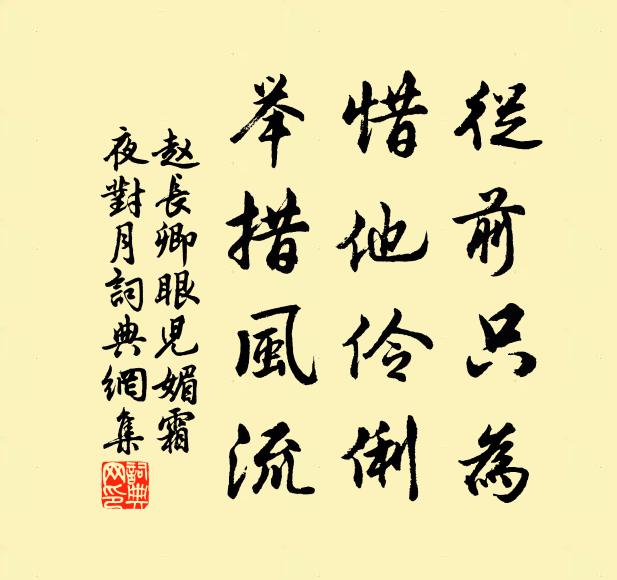 從前只為
惜他伶俐
举措風流
赵長卿眼児媚霜
夜對月詞典網集
詞典网印